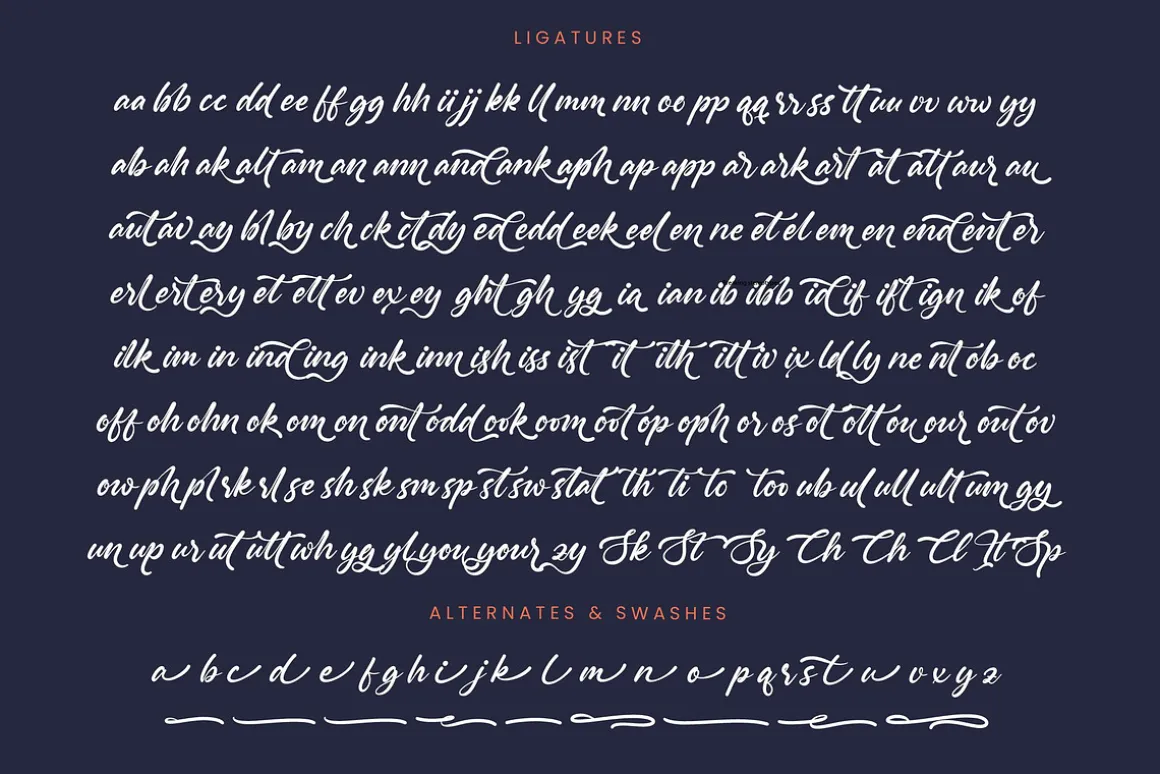 LIGATURES
aa bb cc dd ee ff gg hh ii jj kk ll mm nn oo pp qq rr ss tt uu vv ww yy
ab ah ak alt am an ann and ank aph ap app ar ark art at att aur au
aut av ay bl by ch ck ct dy ed edd eek eel en ne et el em en end ent er
erl ert ery et ett ev ex ey ght gh yg ia ian ib ibb id if ift ign ik of
ilk im in ind ing ink inn ish iss ist it ith itt iv ix ld ly ne nt ob oc
off oh ohn ok om on ont odd ook oom oot op oph or os ot ott ou our out ov
ow ph pl rk rl se sh sk sm sp st sw stat th ti to too ub ul ull ult um gy
un up ur ut utt wh yg yl you your zy Sk St Sy Ch Ch Cl It Sp
ALTERNATES & SWASHES
a b c d e f g h i j k l m n o p q r s t u v x y z